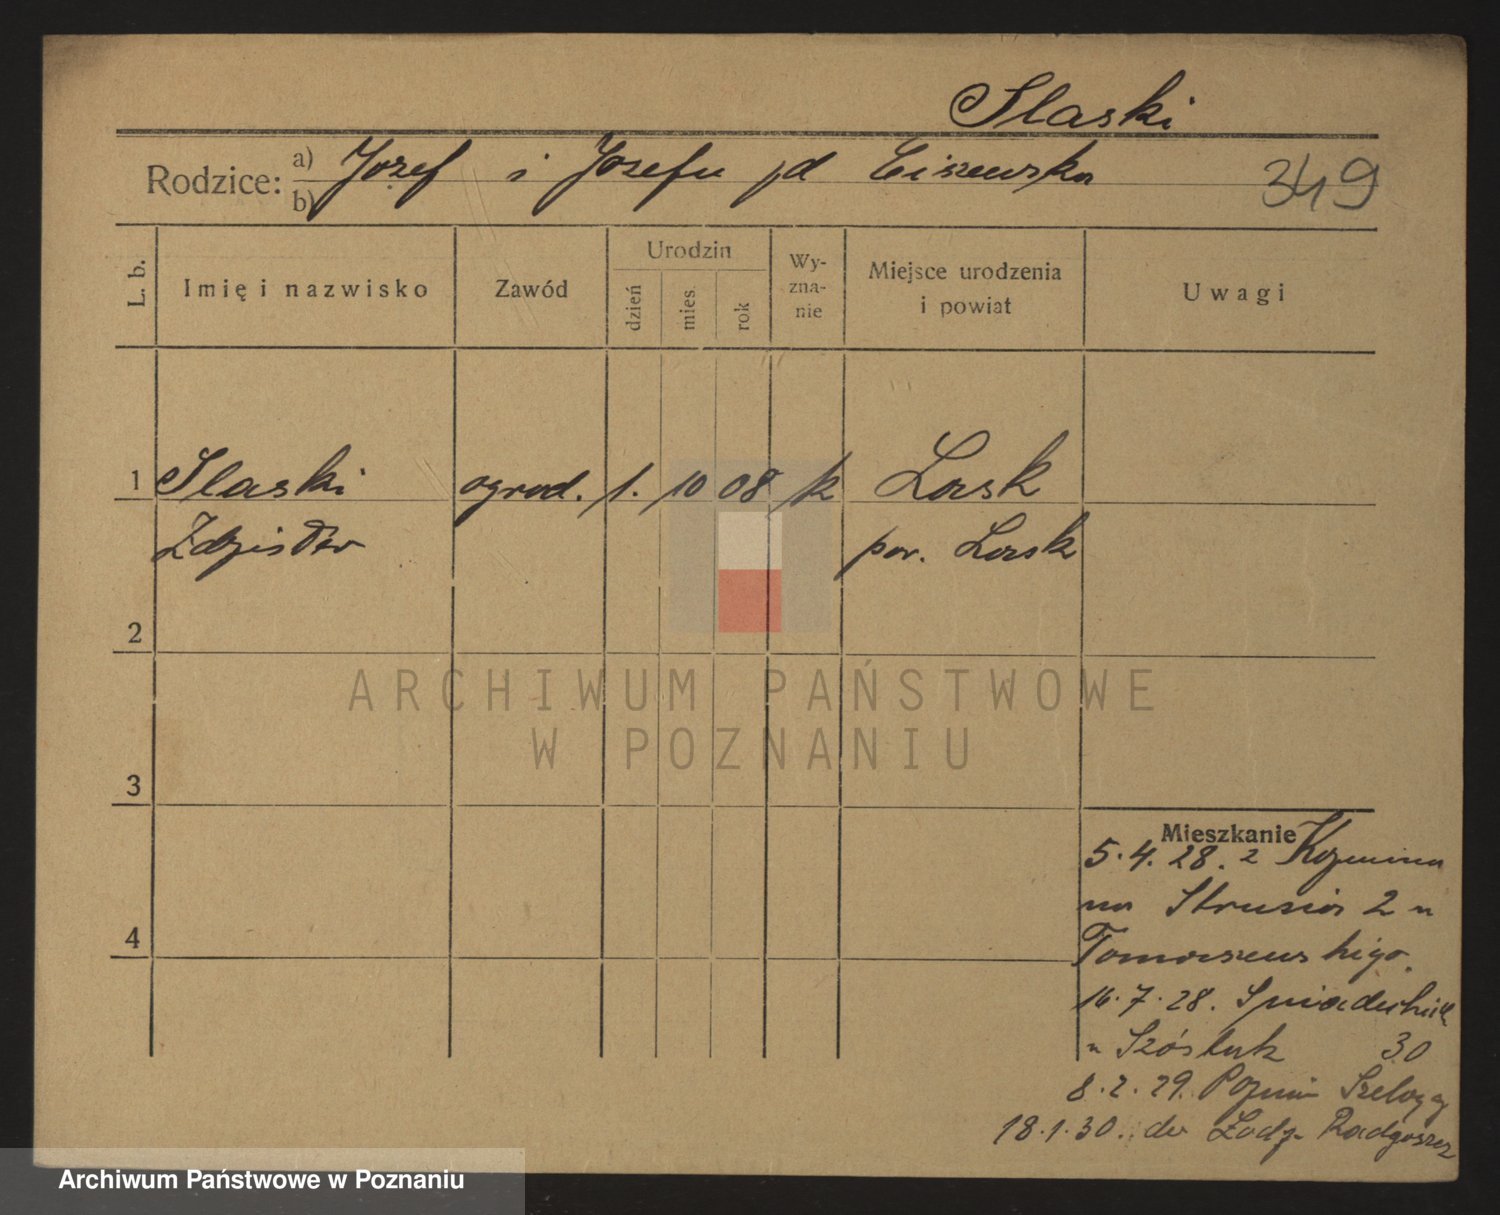 Slaski
Rodzice: a) Józef i Józefa zd Liszewska
b)
349
L. b.
Imię i nazwisko
Zawód
Urodzin
dzień
mies.
rok
Wy-
zna-
nie
Miejsce urodzenia
i powiat
Uwagi
1 Slaski ogrod. 1. 10 08 /k Łask
Zdzisław pow. Łask
2
3
4
Mieszkanie
5.4.28. z Koźmina
na Strusia 2 u
Tomaszewskiego.
16.7.28. Śniadeckich
u Szóstak 30
8.2.29. Poznań Szeląg
18.1.30. do Łodzi Radgoszcz
ARCHIWUM PAŃSTWOWE
W POZNANIU
Archiwum Państwowe w Poznaniu